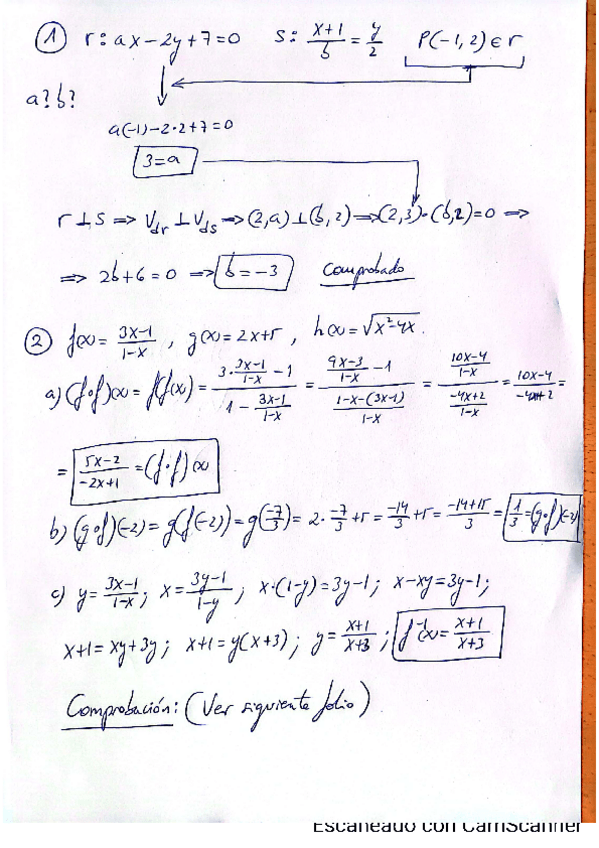 ① r: ax-2y+7=0 s: (x+1)/b = y/2 P(-1,2) ∈ r
a? b?
a(-1)-2·2+7=0
3=a
r ⊥ s ⇒ V_dr ⊥ V_ds ⇒ (2,a) ⊥ (b,2) ⇒ (2,3)·(b,2)=0 ⇒
⇒ 2b+6=0 ⇒ b=-3 Comprobado
② f(x)= (3x-1)/(1-x), g(x)=2x+5, h(x)=√(x²-4x).
a) (f∘f)(x)=f(f(x))= (3·(3x-1)/(1-x) -1)/(1-(3x-1)/(1-x)) = ((9x-3)/(1-x) -1)/((1-x-(3x-1))/(1-x)) = ((10x-4)/(1-x))/((-4x+2)/(1-x)) = (10x-4)/(-4x+2) =
= (5x-2)/(-2x+1) = (f∘f)(x)
b) (g∘f)(-2)=g(f(-2))=g(-7/3)= 2·(-7/3)+5= -14/3+5= (-14+15)/3 = 1/3=(g∘f)(-2)
c) y= (3x-1)/(1-x); x= (3y-1)/(1-y); x·(1-y)=3y-1; x-xy=3y-1;
x+1=xy+3y; x+1=y(x+3); y= (x+1)/(x+3); f⁻¹(x)= (x+1)/(x+3)
Comprobación: (Ver siguiente folio)
Escaneado con CamScanner